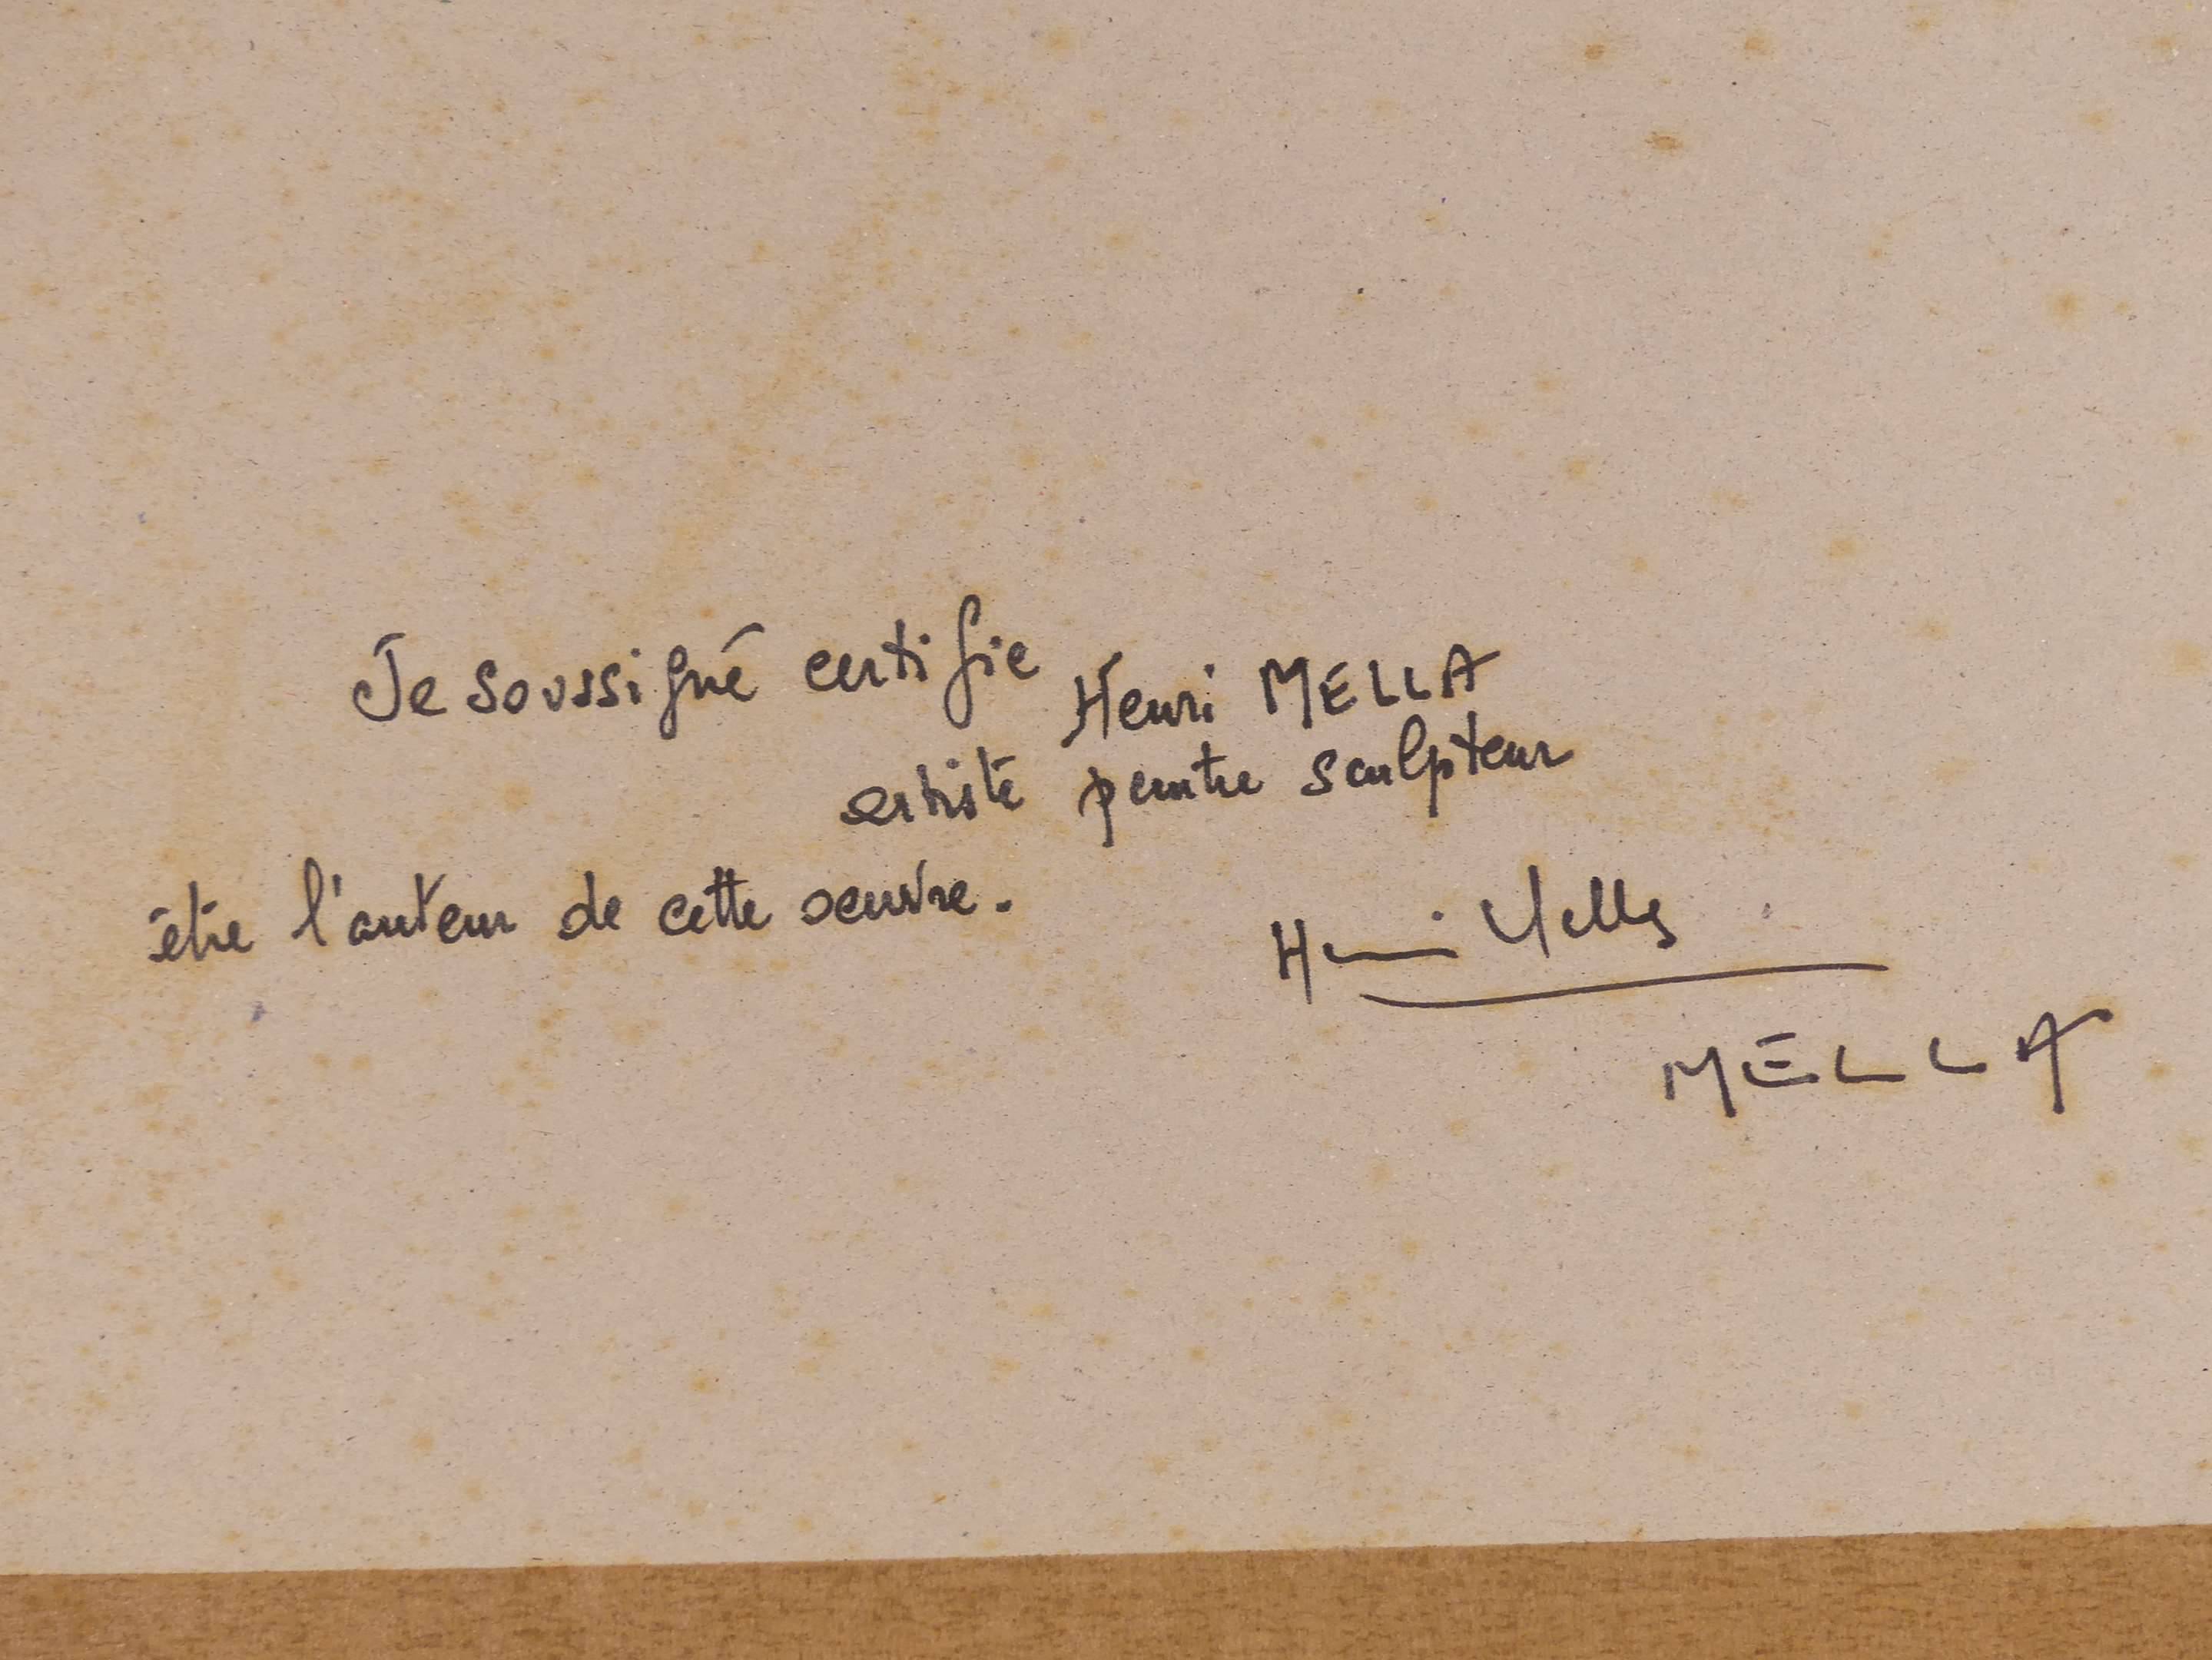 Je soussigné certifie Henri MELLA
artiste peintre sculpteur
être l'auteur de cette oeuvre.
Henri Mella
MELLA